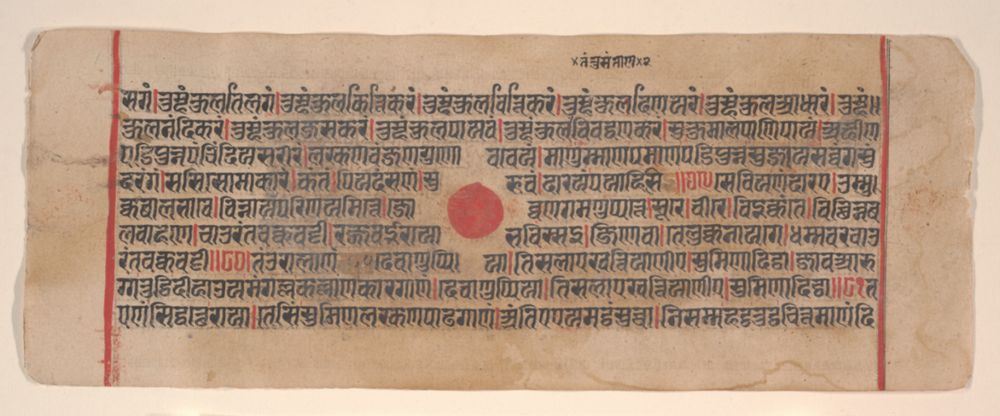 सगं।तुम्हं कुलतिलगं।तुम्हं कुलकित्तिकरं।तुम्हं कुलवित्तिकरं।तुम्हं कुलदिणयरं।तुम्हं कुलआधरं।तुम्हं॥
कुलनंदिकरं।तुम्हं कुलजसकरं।तुम्हं कुलपायवं।तुम्हं कुलविवद्धणकरं।सुकुमालपाणिपायं।अहीण
पडिपुन्नपंचिंदियसरीरं।लरकणवंजणगुणोववेयं।माणुम्माणपमाणपडिपुन्नसुजायसव्वंगसुं
दरंगं।ससिसोमाकारं।कंतं।पियदंसणं।सुरूवं।दारयं पयाहिसि॥७९॥सेवियणंदारए।उम्मु
क्कबालभावे।विन्नायपरिणयमित्ते।जोव्वणगमणुप्पत्ते।सूरे।वीरे।विइक्कंते।विच्छिन्नब
लवाहणे।चाउरंतचक्कवट्टी।रज्जवईराया भविस्सइ।जिणेवा।तेलुक्कनायगे।धम्मवरचाउ
रंतचक्कवट्टी॥८०॥तंउरालाणं देवाणुप्पिया।तिसलाए खत्तियाणीए।सुमिणादिठा।जावआरु
ग्गतुट्ठिदीहाउयमंगल्लकल्लाणकारगाणं।देवाणुप्पिया।तिसलाए खत्तियाणीए।सुमिणादिठा॥८१त
एणंसिद्धत्थेराया।तेसिंसुमिणलरकणपाढगाणं।अंतिएएयमठंसुच्चा।निसम्महठतुठचित्तमाणंदि